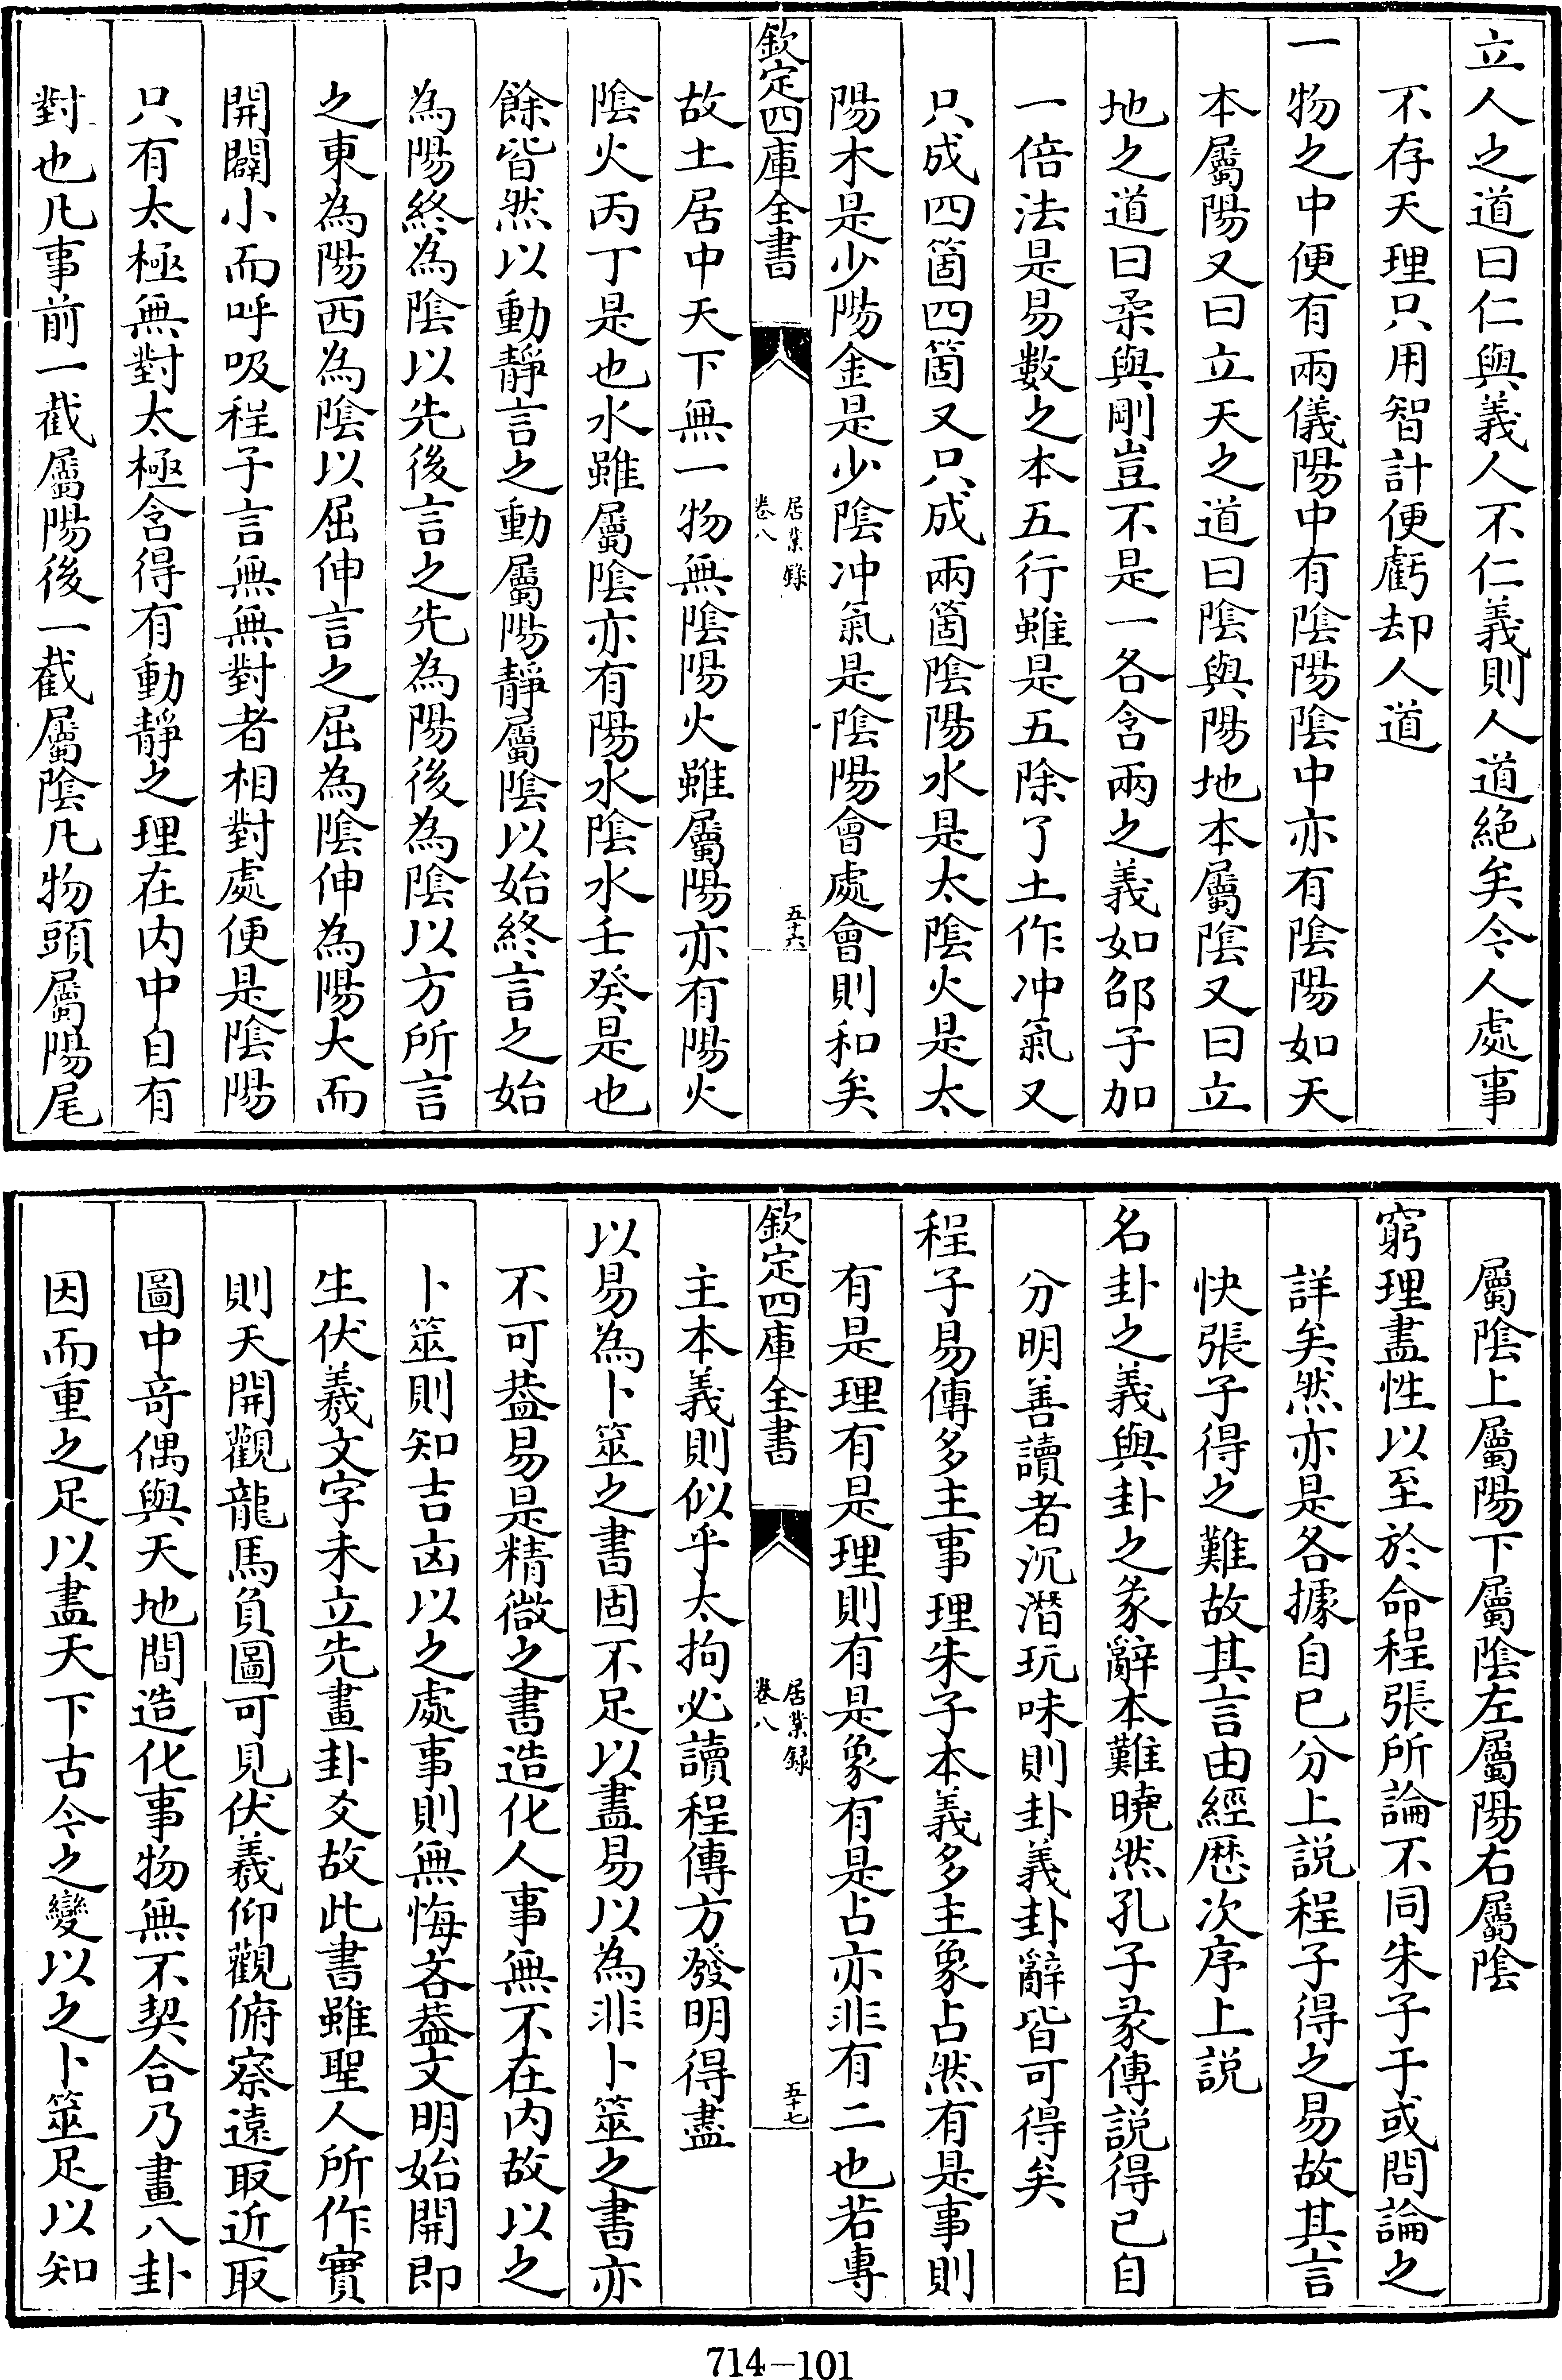 立人之道曰仁與義人不仁義則人道絕矣今人處事
不存天理只用智計便虧却人道
一物之中便有兩儀陽中有陰陽陰中亦有陰陽如天
本屬陽又曰立天之道曰陰與陽地本屬陰又曰立
地之道曰柔與剛豈不是一各含兩之義如邵子加
一倍法是易數之本五行雖是五除了土作冲氣又
只成四箇四箇又只成兩箇陰陽水是太陰火是太
陽木是少陽金是少陰冲氣是陰陽會處會則和矣
欽定四庫全書
居業錄
卷八
五十六
故土居中天下無一物無陰陽火雖屬陽亦有陽火
陰火丙丁是也水雖屬陰亦有陽水陰水壬癸是也
餘皆然以動靜言之動屬陽靜屬陰以始終言之始
為陽終為陰以先後言之先為陽後為陰以方所言
之東為陽西為陰以屈伸言之屈為陰伸為陽大而
開闢小而呼吸程子言無無對者相對處便是陰陽
只有太極無對太極含得有動靜之理在内中自有
對也凡事前一截屬陽後一截屬陰凡物頭屬陽尾
屬陰上屬陽下屬陰左屬陽右屬陰
窮理盡性以至於命程張所論不同朱子于或問論之
詳矣然亦是各據自已分上説程子得之易故其言
快張子得之難故其言由經歴次序上説
名卦之義與卦之彖辭本難曉然孔子彖傳説得已自
分明善讀者沉潛玩味則卦義卦辭皆可得矣
程子易傳多主事理朱子本義多主象占然有是事則
有是理有是理則有是象有是占亦非有二也若專
欽定四庫全書
居業録
卷八
五十七
主本義則似乎太拘必讀程傳方發明得盡
以易為卜筮之書固不足以盡易以為非卜筮之書亦
不可葢易是精微之書造化人事無不在内故以之
卜筮則知吉凶以之處事則無悔吝葢文明始開即
生伏羲文字未立先畫卦爻故此書雖聖人所作實
則天開觀龍馬負圖可見伏羲仰觀俯察遠取近取
圖中竒偶與天地間造化事物無不契合乃畫八卦
因而重之足以盡天下古今之變以之卜筮足以知
714-101